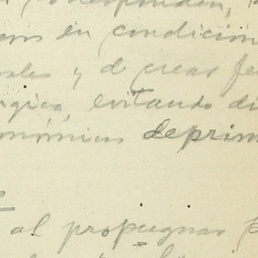 corresponden,
en condicion
ales y de crear fe
gica, evitando di
onómicas deprim
al propugnar